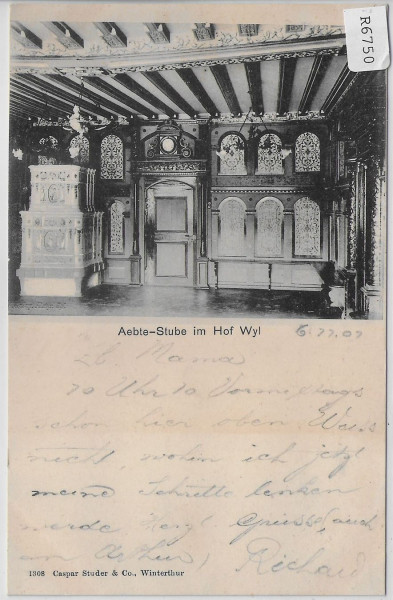 R6750
Aebte-Stube im Hof Wyl
L. Mama
10 Uhr 10 Vormittags
schon hier oben. Weiss
nicht, wohin ich jetzt
meine Schritte lenken
werde. Herzl. Grüsse (auch
an Arthur)
Richard
1308 Caspar Studer & Co., Winterthur